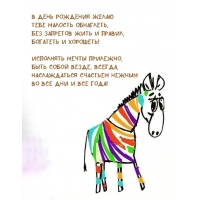 В ДЕНЬ РОЖДЕНИЯ ЖЕЛАЮ
ТЕБЕ МАЛОСТЬ ОБНАГЛЕТЬ,
БЕЗ ЗАПРЕТОВ ЖИТЬ И ПРАВИЛ,
БОГАТЕТЬ И ХОРОШЕТЬ!
ИСПОЛНЯТЬ МЕЧТЫ ПРИЛЕЖНО,
БЫТЬ СОБОЙ ВЕЗДЕ, ВСЕГДА,
НАСЛАЖДАТЬСЯ СЧАСТЬЕМ НЕЖНЫМ
ВО ВСЕ ДНИ И ВСЕ ГОДА!